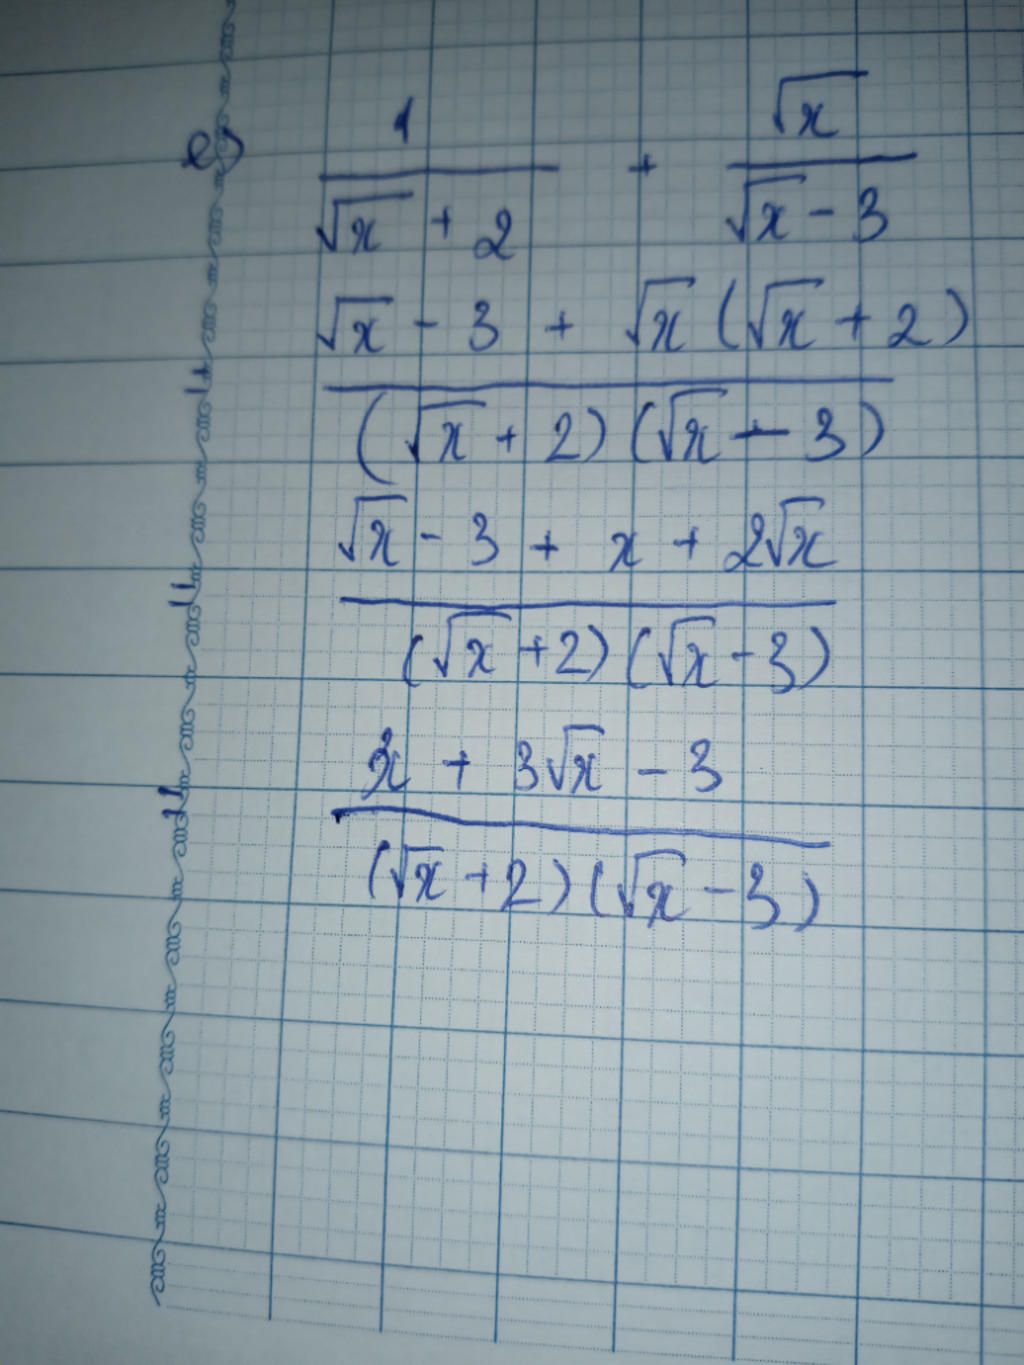 e) 1/(√x + 2) + √x/(√x - 3)
(√x - 3 + √x (√x + 2))/((√x + 2) (√x - 3))
(√x - 3 + x + 2√x)/((√x + 2) (√x - 3))
(x + 3√x - 3)/((√x + 2) (√x - 3))